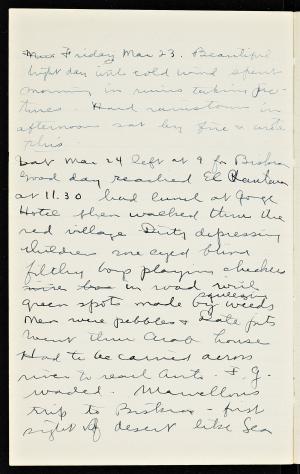 Friday Mar 23. Beautiful
bright day with cold wind spent
morning in ruins taking pic-
tures. Hard rainstorm in
afternoon sat by fire & wrote
Sat Mar 24 left at 9 for Biskra
Good day reached El Kantara
at 11.30 had lunch at Gorge
Hotel then walked thru the
red village Dirty depressing
children one eyed blind
filthy boys playing checkers
in road with
green spots made by squeezing weeds
men were pebbles & date pits
Went thru Arab house
Had to be carried across
river to reach auto. F.G.
waded. Marvellous
trip to Biskra - first
sight of desert like Sea